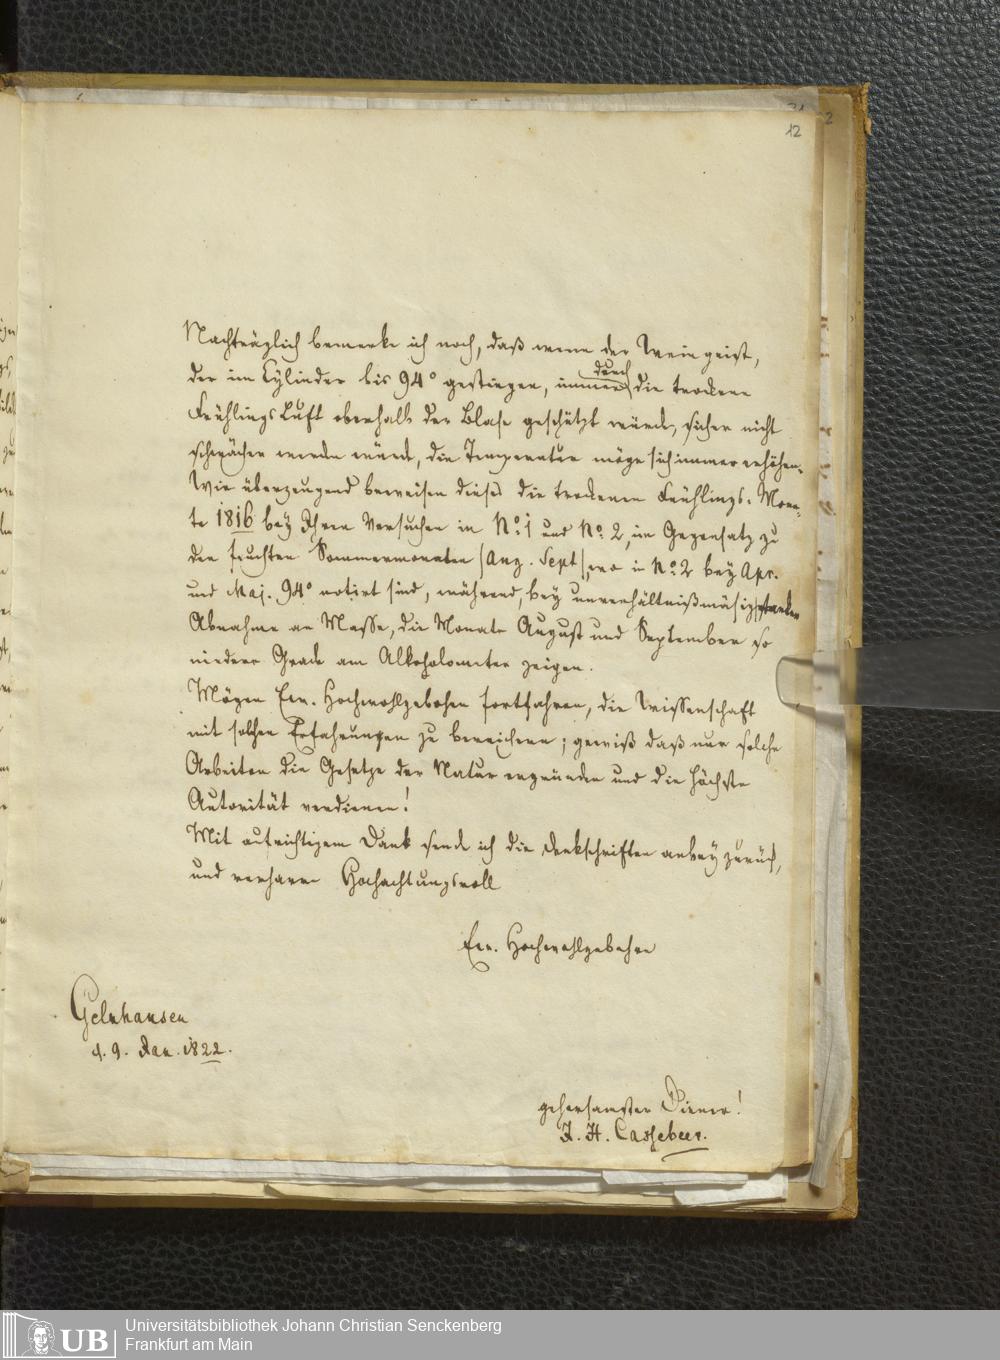 12
2
Nachträglich bemerke ich noch, daß wenn der Weingeist,
der im Cylinder bis 94° gestiegen, immer durch die trockene
Frühlings Luft oberhalb der Blase geschützt würde, sicher nicht
schwächer werden würde, die Temperatur möge sich immer erhöhen.
Wie überzeugend beweisen dieses die trockenen Frühlings-Mona-
te 1816 bey Ihren Versuchen in No. 1 und No. 2, im Gegensatz zu
den feuchten Sommermonaten (Aug. Sept), wo in No. 2 bey Apr.
und Maj. 94° notirt sind, während, bey unverhältnißmäsig starken
Abnahme an Masse, die Monate August und September so
niedere Grade am Alkoholometer zeigen.
Mögen Ew. Hochwohlgebohren fortfahren, die Wissenschaft
mit solchen Erfahrungen zu bereichern; gewiß daß nur solche
Arbeiten die Gesetze der Natur ergründen und die höchste
Autorität verdienen!
Mit aufrichtigem Dank sende ich die Denkschriften anbey zurück,
und verharre Hochachtungsvoll
Ew. Hochwohlgebohren
Gelnhausen
d. 9. Jan. 1822.
gehorsamster Diener!
J. H. Cassebeer.
UB
Universitätsbibliothek Johann Christian Senckenberg
Frankfurt am Main